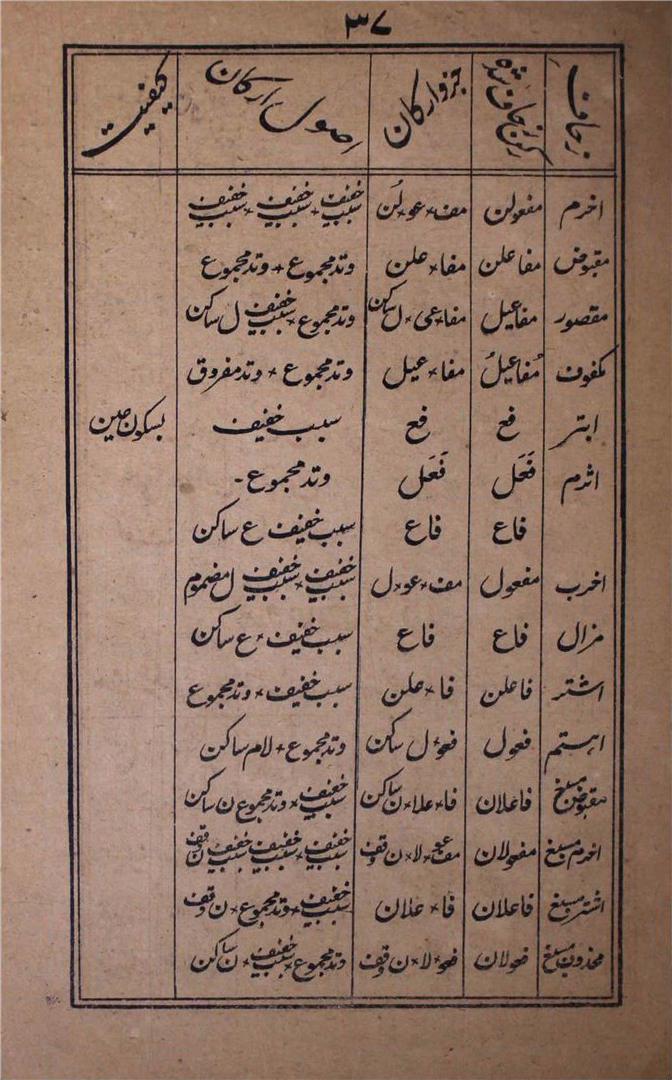 ۳۷
زحاف رکن زحاف شدہ جزو ارکان اصول ارکان کیفیت
اخرم مفعولن مف × عو × لُن سبب خفیف + سبب خفیف × سبب خفیف
مقبوض مفاعلن مفا × علن وتد مجموع + وتد مجموع
مقصور مفاعیل مفا × عی × ل ساکن وتد مجموع × سبب خفیف ل ساکن
مکفوف مفاعیلُ مفا × عیل وتد مجموع × وتد مفروق
ابتر فع فع سبب خفیف بسکون عین
اثرم فَعَل فَعَل وتد مجموع -
فاع فاع سبب خفیف ع ساکن
اخرب مفعول مف × عو × ل سبب خفیف × سبب خفیف ل مضموم
مزال فاع فاع سبب خفیف × ع ساکن
اشتر فاعلن فا × علن سبب خفیف × وتد مجموع
اہتم فعول فعو × ل ساکن وتد مجموع + لام ساکن
مقبوض مسبغ فاعلان فا × علا × ن ساکن سبب خفیف × وتد مجموع ن ساکن
اخرم مسبغ مفعولان مف × عو × لا × ن وقف سبب خفیف × سبب خفیف سبب خفیف ن وقف
اشتر مسبغ فاعلان فا × علان سبب خفیف × وتد مجموع × ن وقف
محذوف مسبغ فعولان فعو × لا × ن وقف وتد مجموع × سبب خفیف × ن ساکن